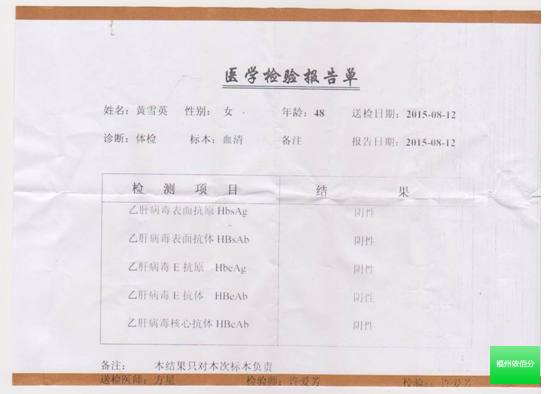 医学检验报告单
姓名：黄雪英 性别：女 年龄：48 送检日期：2015-08-12
诊断：体检 标本：血清 备注 报告日期：2015-08-12
检测项目 结果
乙肝病毒表面抗原HbsAg 阴性
乙肝病毒表面抗体HBsAb 阴性
乙肝病毒E抗原 HbeAg 阴性
乙肝病毒E抗体 HBeAb 阴性
乙肝病毒核心抗体HBcAb 阴性
备注： 本结果只对本次标本负责
送检医师：方星 检验师：许爱芳 校验：许爱芳
福州依佰分